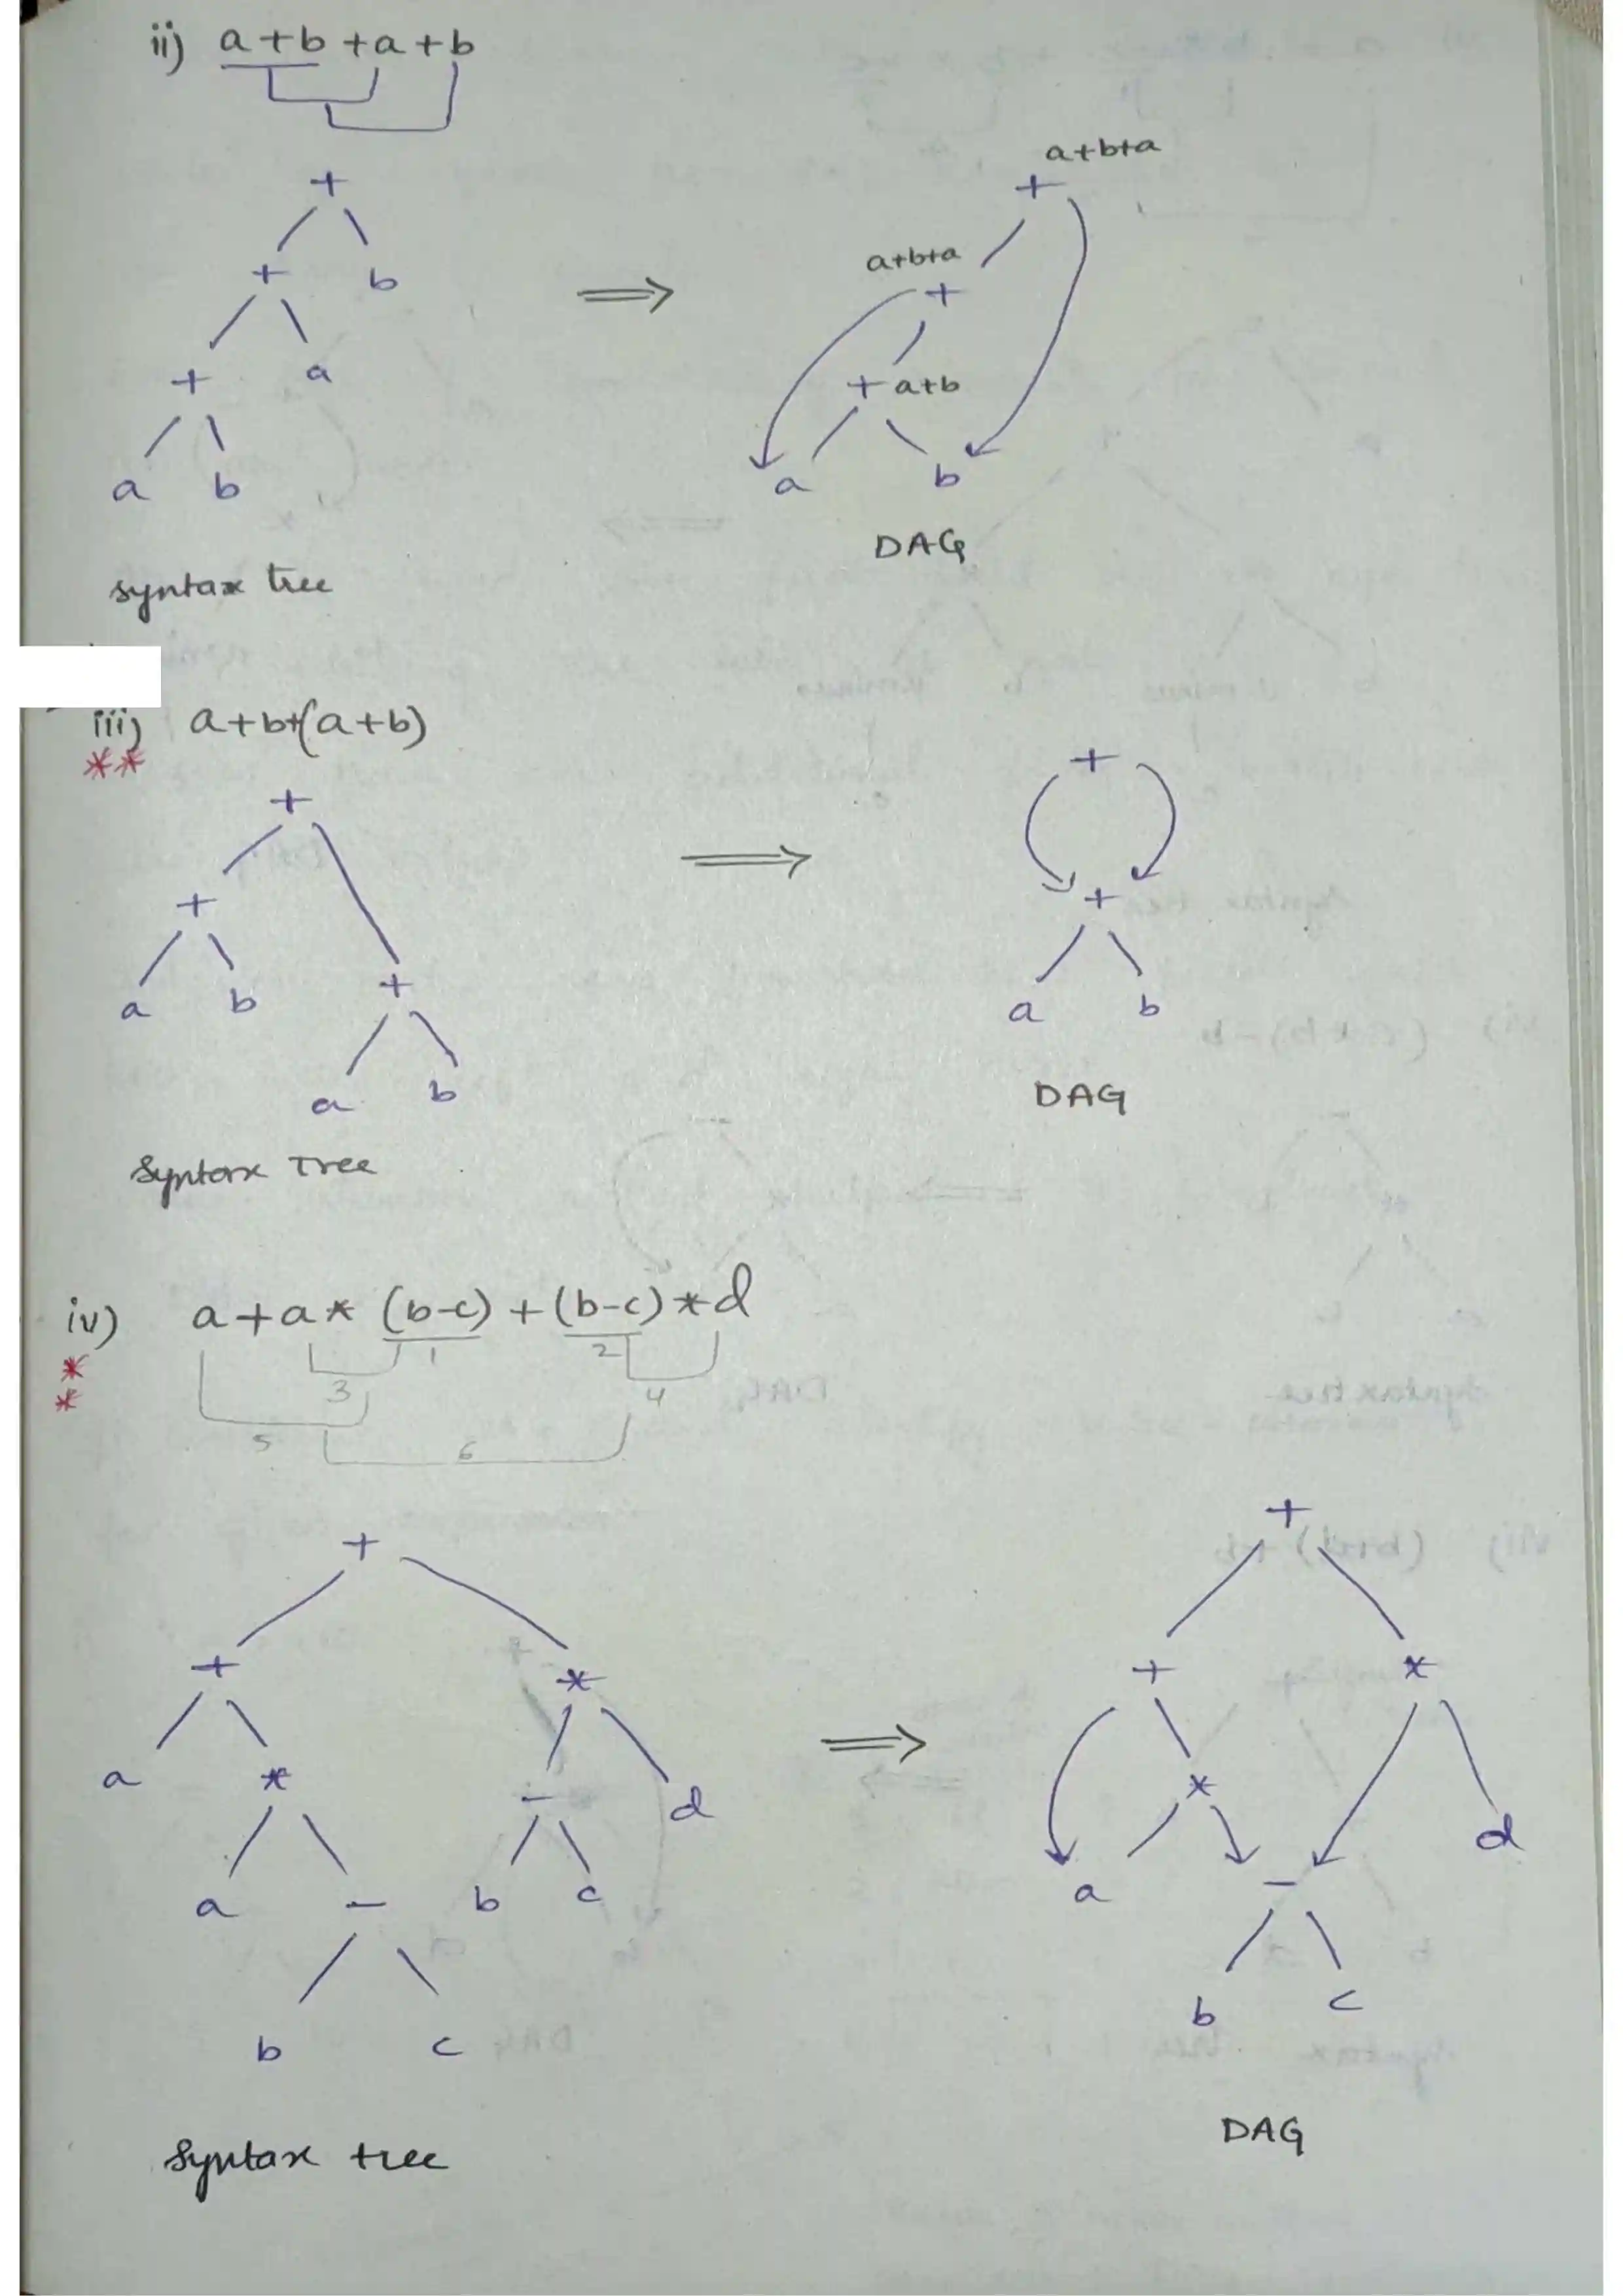 ii) a+b+a+b
+
+ b
+ a
a b
syntax tree
⟹
a+b+a
+
a+b+a
+
+ a+b
a b
DAG
iii) a+b+(a+b)
**
+
+
a b
+
a b
Syntax Tree
⟹
+
+
a b
DAG
iv) a+a* (b-c) + (b-c) *d
*
*
1 2
3 4
5 6
+
+ *
a * - d
a - b c
b c
Syntax tree
⟹
+
+ *
*
a - d
b c
DAG